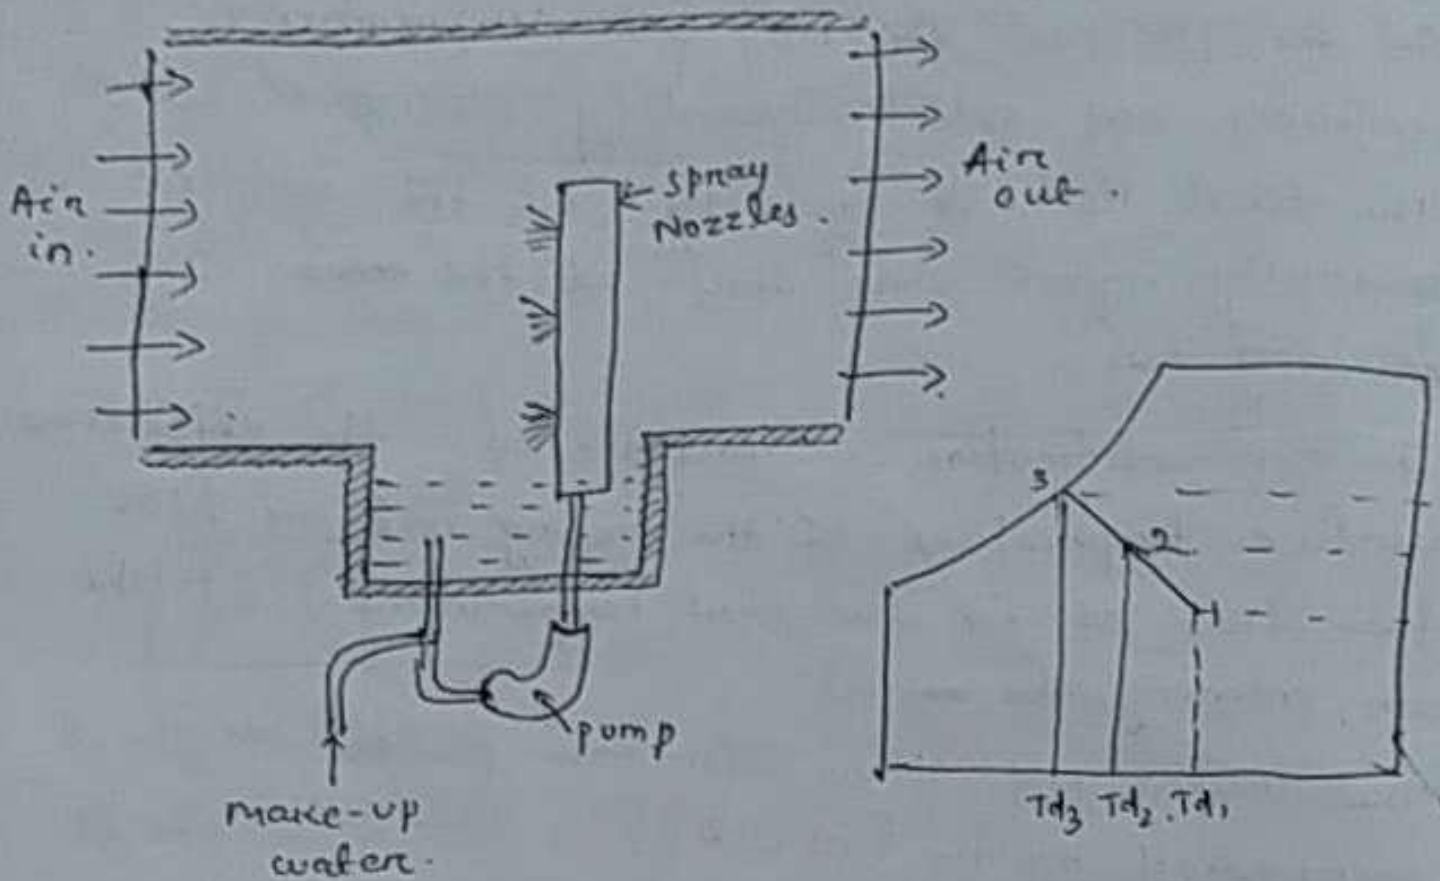 Air
in.
spray
Nozzles.
Air
out.
pump
make-up
water.
3
2
1
Td₃ Td₂ Td₁